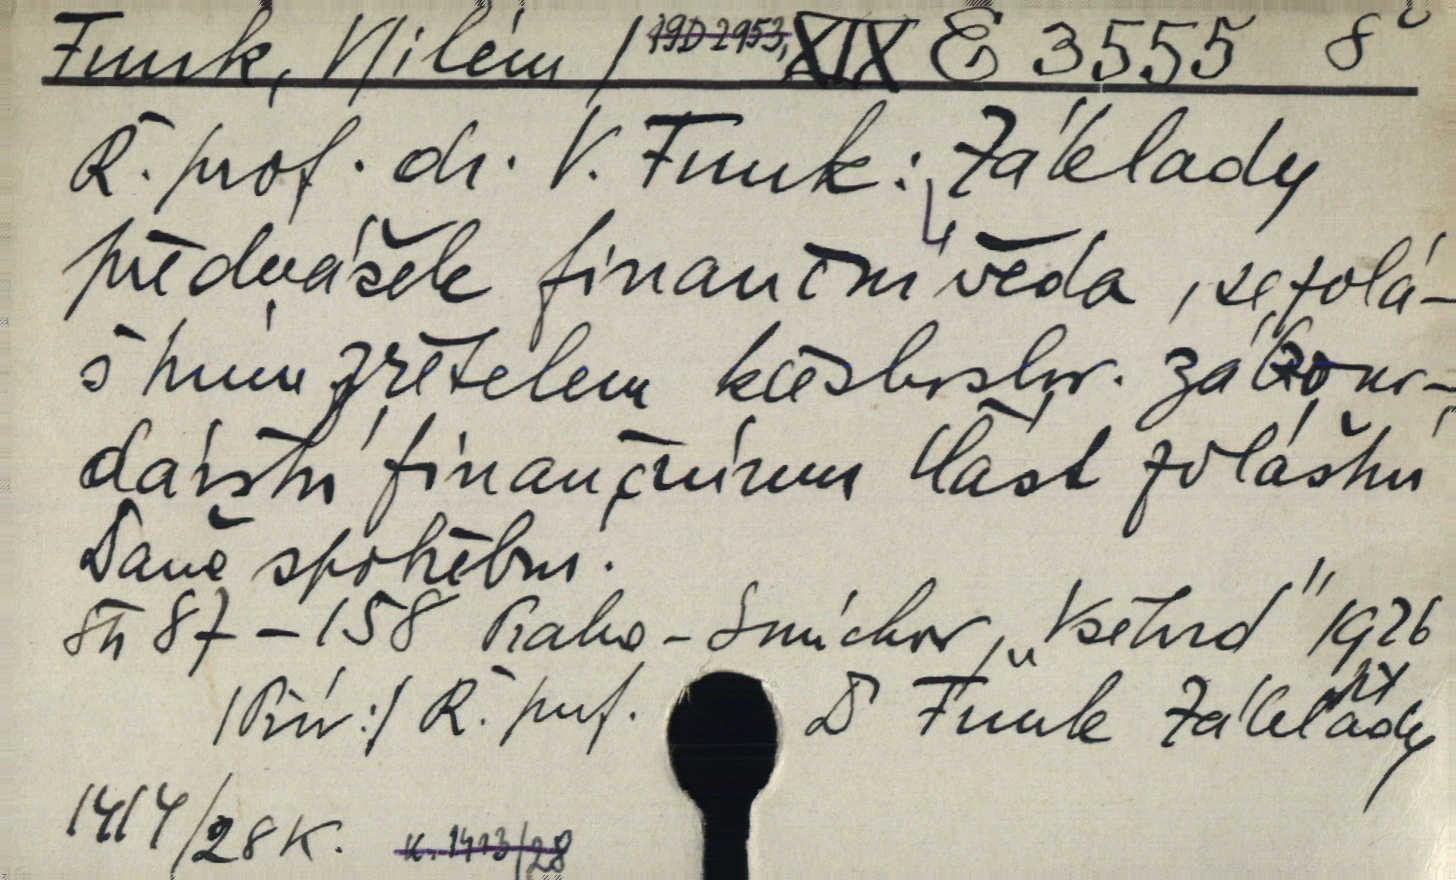 Funk, Vilém / 19D 2953, XIX E 3555 8°
Ř. prof. dr. V. Funk: Základy
předvášek finanční věda, se zvlá-
štním zřetelem k česloslov. zákono-
dárství finančnímu Část zvláštní
Daně spotřební.
str 87-158 Praha-Smíchov, „Všehrd" 1926
/Přív:/ Ř. prof. Dr Funk Základy
lit
1414/28 K. K. 1413/28